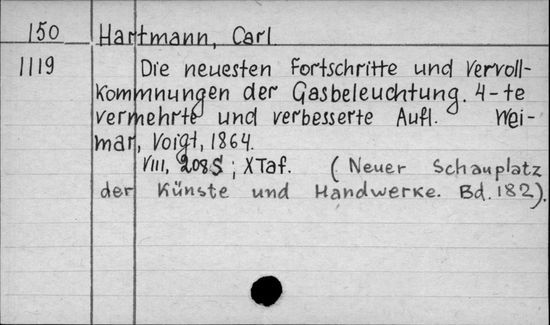 150 Hartmann, Carl
1119 Die neuesten Fortschritte und Vervoll-
kommnungen der Gasbeleuchtung. 4-te
vermehrte und verbesserte Aufl. Wei-
mar, Voigt, 1864.
VIII, 208 S; X Taf. (Neuer Schauplatz
der Künste und Handwerke. Bd. 182).